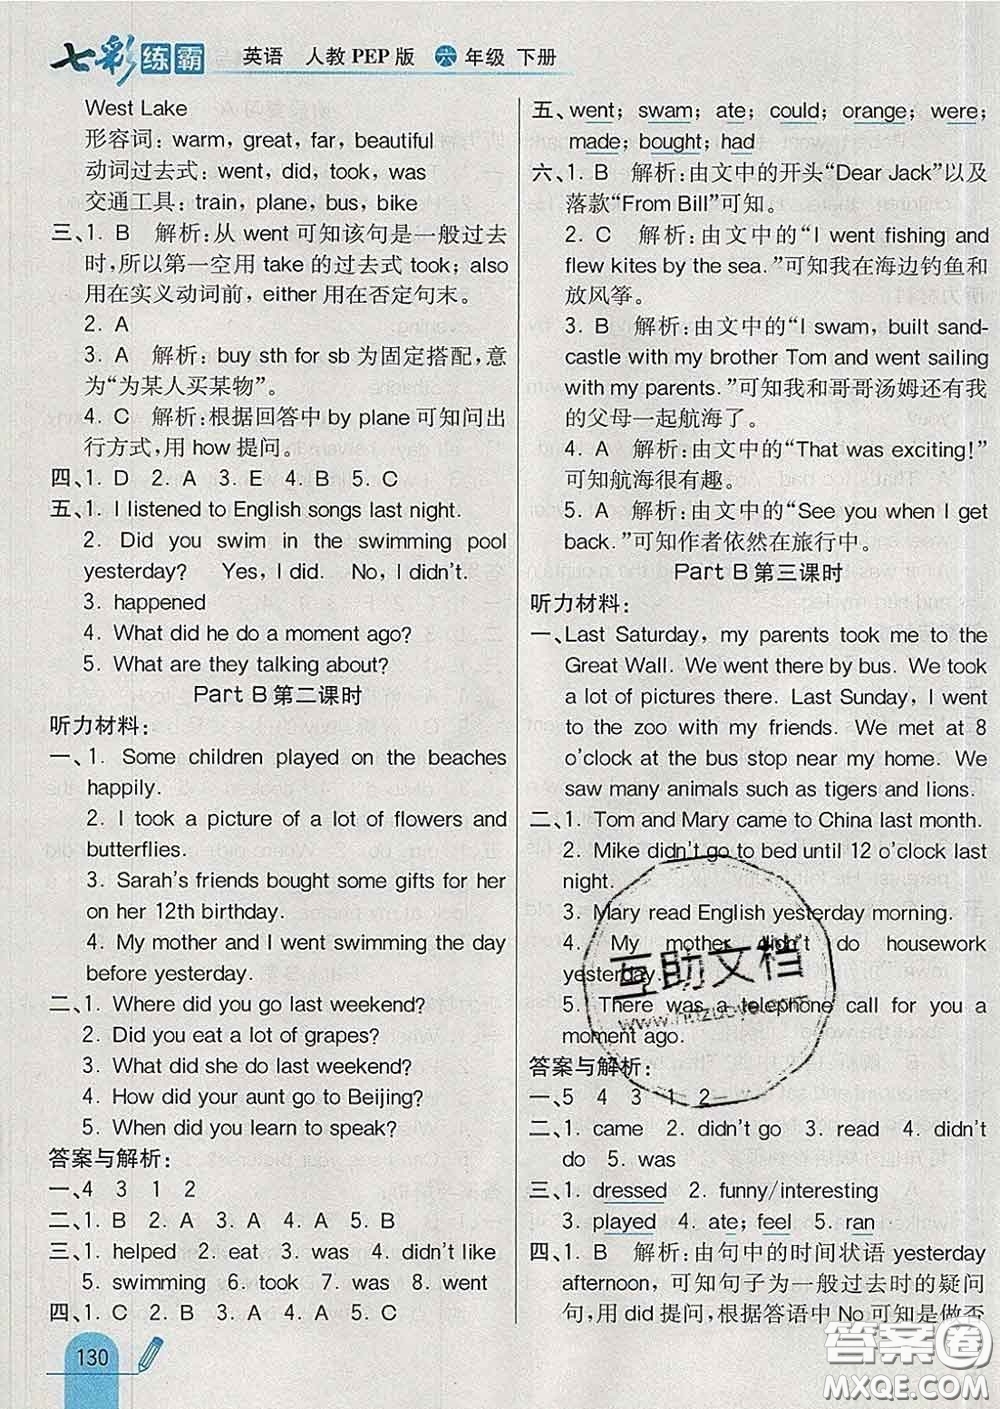 七彩练霸 英语 人教PEP版 六年级 下册
West Lake
形容词：warm，great，far，beautiful
动词过去式：went，did，took，was
交通工具：train，plane，bus，bike
三、1. B 解析：从 went 可知该句是一般过去
时，所以第一空用 take 的过去式 took；also
用在实义动词前，either 用在否定句末。
2. A
3. A 解析：buy sth for sb 为固定搭配，意
为“为某人买某物”。
4. C 解析：根据回答中 by plane 可知问出
行方式，用 how 提问。
四、1. D 2. A 3. E 4. B 5. C
五、1. I listened to English songs last night.
2. Did you swim in the swimming pool
yesterday? Yes, I did. No, I didn't.
3. happened
4. What did he do a moment ago?
5. What are they talking about?
Part B 第二课时
听力材料：
一、1. Some children played on the beaches
happily.
2. I took a picture of a lot of flowers and
butterflies.
3. Sarah's friends bought some gifts for her
on her 12th birthday.
4. My mother and I went swimming the day
before yesterday.
二、1. Where did you go last weekend?
2. Did you eat a lot of grapes?
3. What did she do last weekend?
4. How did your aunt go to Beijing?
5. When did you learn to speak?
答案与解析：
一、4 3 1 2
二、1. B 2. A 3. A 4. A 5. B
三、1. helped 2. eat 3. was 4. didn't like
5. swimming 6. took 7. was 8. went
四、1. C 2. B 3. A 4. A 5. C
130
五、went；swam；ate；could；orange；were；
made；bought；had
六、1. B 解析：由文中的开头“Dear Jack”以及
落款“From Bill”可知。
2. C 解析：由文中的“I went fishing and
flew kites by the sea.”可知我在海边钓鱼和
放风筝。
3. B 解析：由文中的“I swam, built sand-
castle with my brother Tom and went sailing
with my parents.”可知我和哥哥汤姆还有我
的父母一起航海了。
4. A 解析：由文中的“That was exciting!”
可知航海很有趣。
5. A 解析：由文中的“See you when I get
back.”可知作者依然在旅行中。
Part B 第三课时
听力材料：
一、Last Saturday, my parents took me to the
Great Wall. We went there by bus. We took
a lot of pictures there. Last Sunday, I went
to the zoo with my friends. We met at 8
o'clock at the bus stop near my home. We
saw many animals such as tigers and lions.
二、1. Tom and Mary came to China last month.
2. Mike didn't go to bed until 12 o'clock last
night.
3. Mary read English yesterday morning.
4. My mother didn't do housework
yesterday.
5. There was a telephone call for you a
moment ago.
答案与解析：
一、5 4 3 1 2
二、1. came 2. didn't go 3. read 4. didn't
do 5. was
三、1. dressed 2. funny/interesting
3. played 4. ate；feel 5. ran
四、1. B 解析：由句中的时间状语 yesterday
afternoon，可知句子为一般过去时的疑问
句，用 did 提问，根据答语中 No 可知是做否
互助文档
答案圈
MXQE.COM